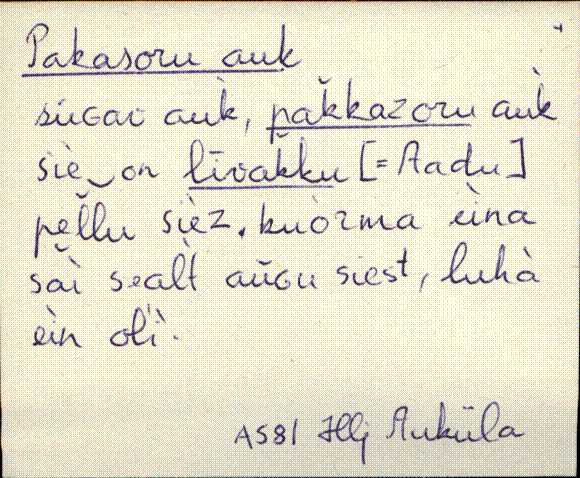 Pakasoru auk
sùɢav aùk, pǎkkazoru aùk
siè‿on līvakku [= Aadu]
pěl̆lu sìez. kùorma èina
sǎi sealt aŭɢu siest, luhà
èin ol'i.
AS81 Hlj Auküla